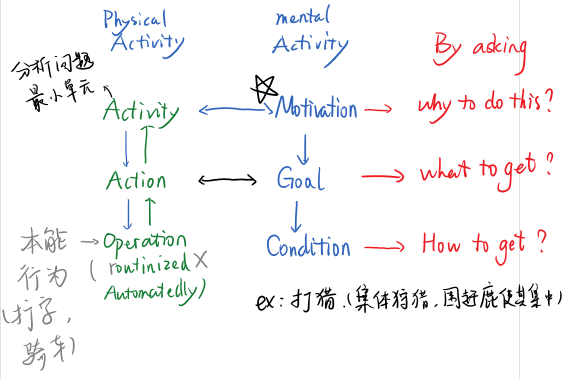 Physical Activity
mental Activity
By asking
分析问题
最小单元
Activity
Motivation
why to do this?
Action
Goal
what to get?
本能
行为
(打字,
骑车)
Operation
(routinized
Automatedly)
Condition
How to get?
ex: 打猎.(集体狩猎,围赶鹿使其集中)